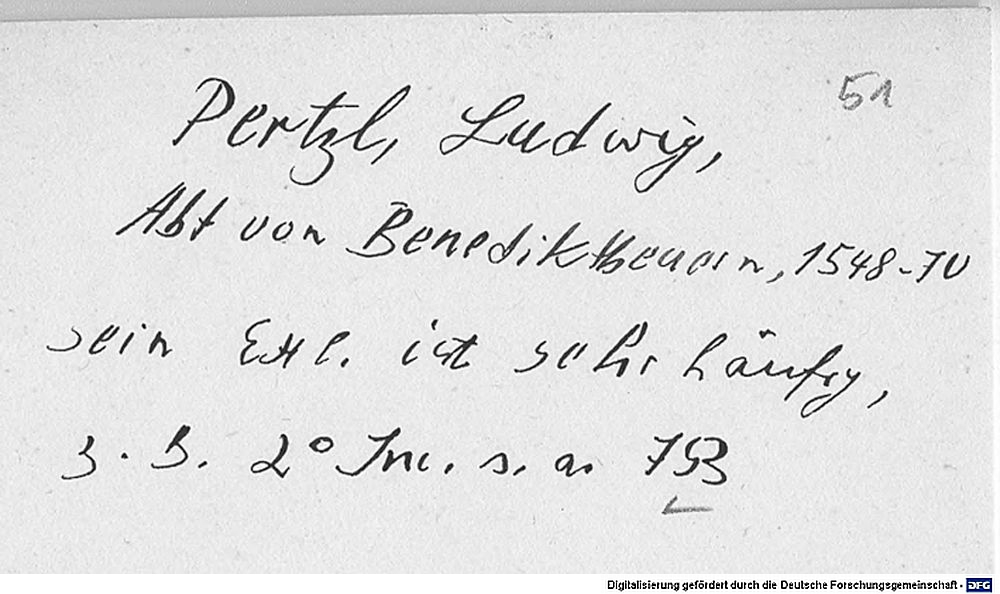 51
Pertzl, Ludwig,
Abt von Benediktbeuern, 1548-70
sein Exl. ist sehr häufig,
z. B. 2° Inc. s. a. 753
Digitalisierung gefördert durch die Deutsche Forschungsgemeinschaft - DFG